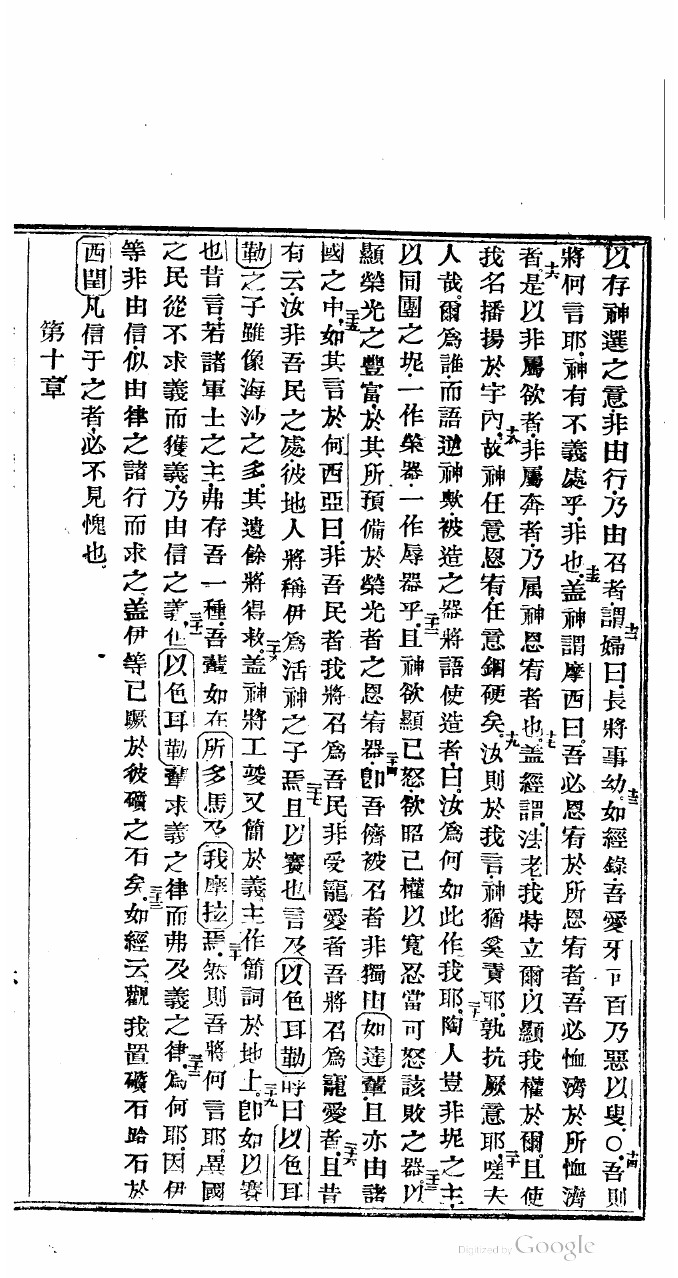 以存神選之意非由行乃由召者謂婦曰長將事幼如經錄吾愛牙可百乃惡以叟○吾則
將何言耶神有不義處乎非也蓋神謂摩西曰吾必恩宥於所恩宥者吾必恤濟於所恤濟
者是以非屬欲者非屬奔者乃属神恩宥者也蓋經謂法老我特立爾以顯我權於爾且使
我名播揚於宇內故神任意恩宥任意鋼硬矣汝則於我言神猶奚責耶孰抗厥意耶嗟夫
人哉爾為誰而語逆神歟被造之器將語使造者曰汝為何如此作我耶陶人豈非坭之主
以同團之坭一作榮器一作辱器乎且神欲顯己怒欲昭己權以寬忍當可怒該敗之器以
顯榮光之豐富於其所預備於榮光者之恩宥器即吾儕被召者非獨由如達輩且亦由諸
國之中如其言於何西亞曰非吾民者我將召為吾民非受寵愛者吾將召為寵愛者且昔
有云汝非吾民之處彼地人將稱伊為活神之子焉且以賽也言及以色耳勒呼曰以色耳
勒之子雖像海沙之多其遺餘將得救蓋神將工竣又簡於義主作簡詞於地上即如以賽
也昔言若諸軍士之主弗存吾一種吾輩如在所多馬及我摩拉焉然則吾將何言耶異國
之民從不求義而獲義乃由信之義但以色耳勒輩求義之律而弗及義之律為何耶因伊
等非由信似由律之諸行而求之蓋伊等已蹶於彼礩之石矣如經云觀我置礩石跲石於
西閏凡信于之者必不見愧也
第十章
Digitized by Google